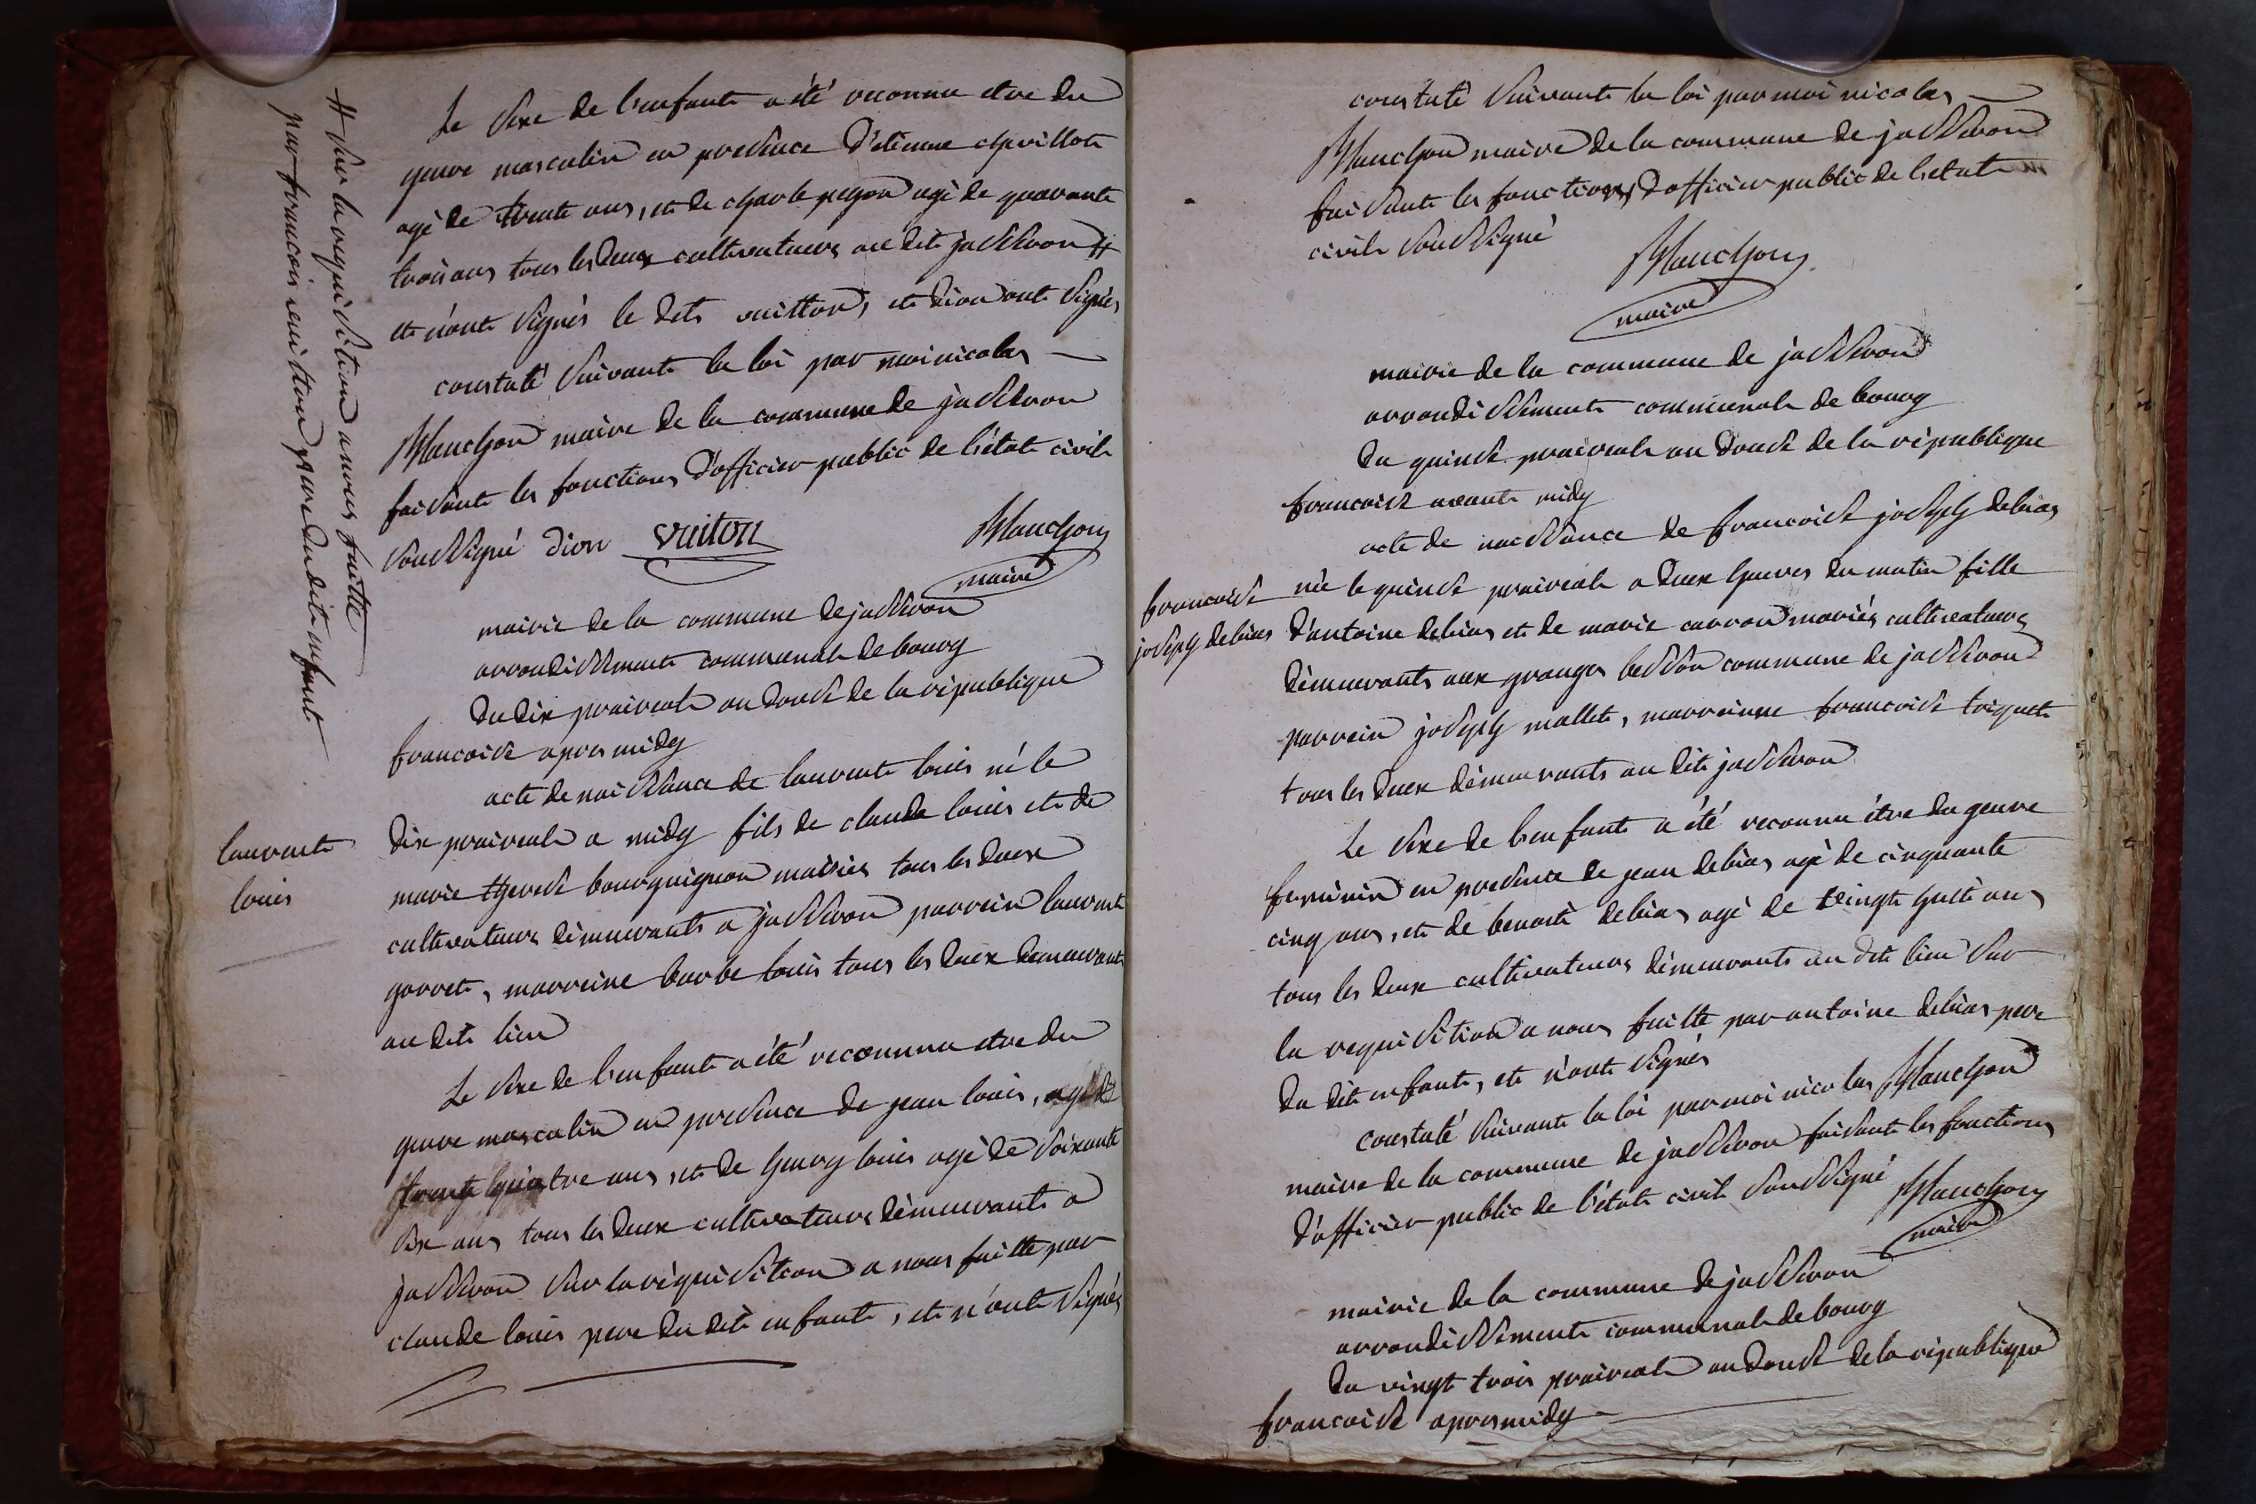 # sur la requisition a nous faitte
par francois vuitton pere du dit enfant
le sexe de l'enfant a été reconnu etre du
genre masculin en presence d'etienne chevillot
agé de trente ans, et de charle pegon agé de quarante
trois ans tous les deux cultivateurs au dit jasseron #
et n'ont signés le dit vuitton, et dion ont signés
constaté suivant la loi par moi nicolas
Planchon maire de la commune de jasseron
faisant les fonctions d'officier public de l'état civil
soussigné dion vuiton Planchon
maire
mairie de la commune de jasseron
arrondissement communal de bourg
du dix prairial an douse de la république
francoise apres midy
acte de naissance de laurent louis né le
laurent
louis
dix prairial a midy fils de claude louis et de
marie therese bourguignon mariés tous les deux
cultivateurs démeurants a jasseron parrein laurent
gorret, marreine barbe louis tous les deux demeurants
au dit lieu
Le sexe de l'enfant a été reconnu etre du
genre masculin en presence de jean louis, agé de
trente quatre ans, et de henry louis agé de soixante
six ans tous les deux cultivateurs démeurants a
jasseron sur la réquisition a nous faitte par
claude louis pere du dit enfant, et n'ont signés
constaté suivant la loi par moi nicolas
Planchon maire de la commune de jasseron
faisant les fonctions d'officier public de l'etat
civil soussigné
Planchon
maire
mairie de la commune de jasseron
arrondissement communal de bourg
du quinse prairial an douse de la république
francoise avant midy
acte de naissance de francoise joseph debias
francoise
joseph debias
née le quinse prairial a deux heures du matin fille
d'antoine debias et de marie carron mariés cultivateurs
démeurants aux granges besson commune de jasseron
parrein joseph mallet, marreinne francoise triquet
tous les deux démeurants au dit jasseron
Le sexe de l'enfant a été reconnu être du genre
feminin en presence de jean debias agé de cinquante
cinq ans, et de benoit debias agé de vingt huit ans
tous les deux cultivateurs démeurants au dit lieu sur
la requisition a nous faitte par antoine debias pere
du dit enfant, et n'ont signés
constaté suivant la loi par moi nicolas Planchon
maire de la commune de jasseron faisant les fonctions
d'officier public de l'état civil soussigné Planchon
maire
mairie de la commune de jasseron
arrondissement communal de bourg
du vingt trois prairial an douse de la république
francoise apres midy